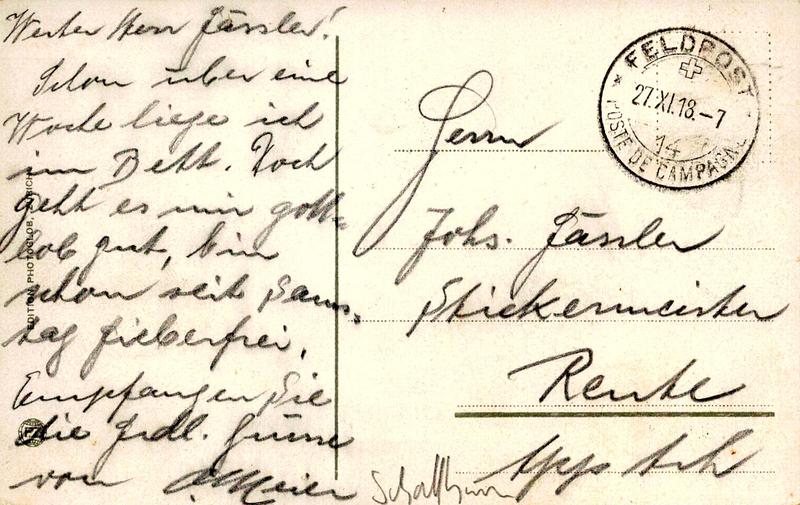 Werter Herr Fässler!
Schon über eine
Woche liege ich
im Bett. Doch
geht es mir gott-
lob gut, bin
schon seit Sams-
tag fieberfrei,
Empfangen Sie
die frdl. Grüsse
von A. Meier
FELDPOST
27.XI.18.-7
14
POSTE DE CAMPAGNE
Herrn
Johs. Fässler
Stickermeister
Reute
App
EDITION PHOTOGLOB, ZÜRICH